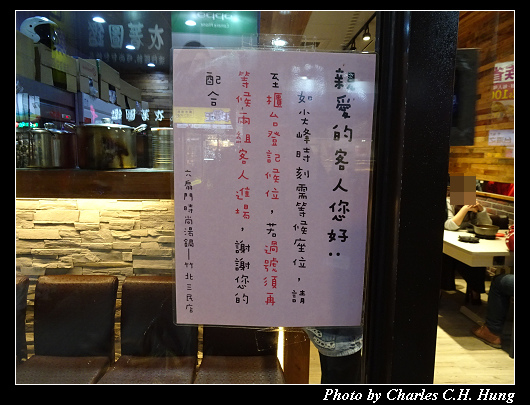 親愛的客人您好:
如尖峰時刻需等候座位，請
至櫃台登記候位，若過號須再
等候兩組客人進場，謝謝您的
配合
六扇門時尚湯鍋－竹北三民店
Photo by Charles C.H. Hung